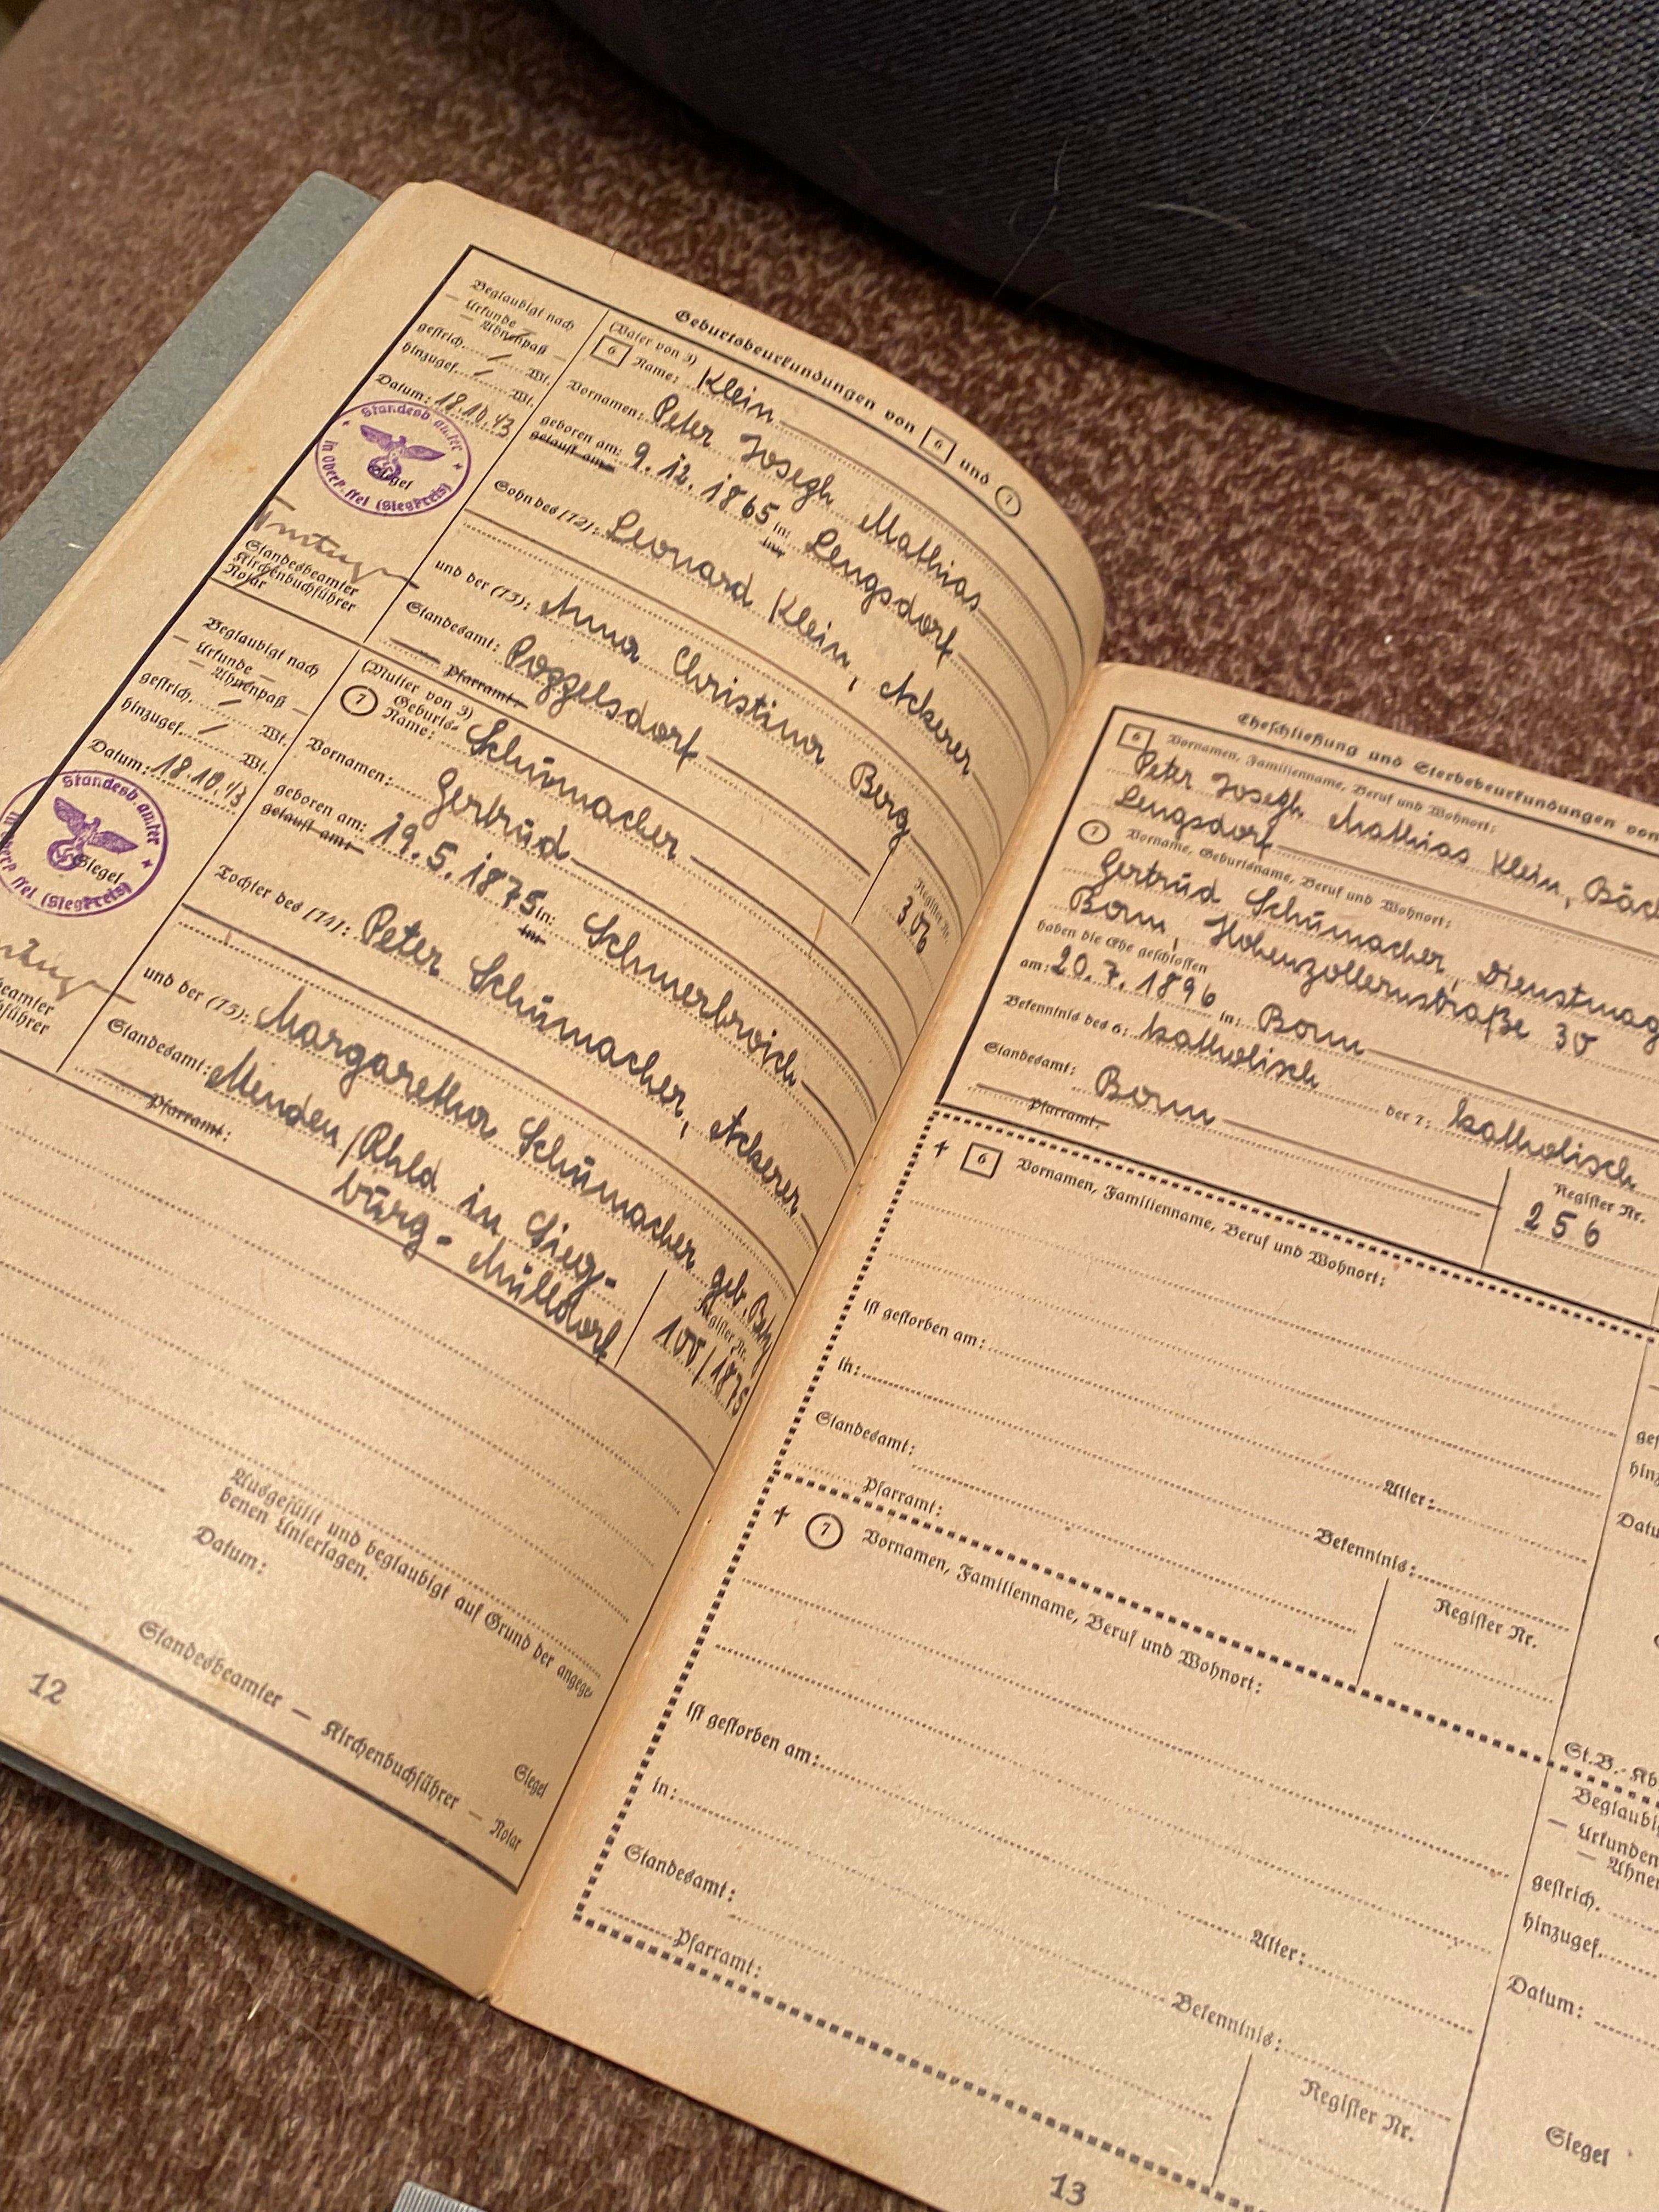 Geburtsbeurkundungen von 6 und 7
Beglaubigt nach
— Urkunde —
— Ahnenpaß —
gestrich. / Wt.
hinzugef. / Wt.
Datum: 18.10.43
Standesbeamter
in Oberkassel (Siegkreis)
Siegel
Standesbeamter
Kirchenbuchführer
Notar
(Vater von 3)
6 Name: Klein
Vornamen: Peter Joseph Mathias
geboren am: 9.12.1865 in: Lengsdorf
getauft am: in:
Sohn des (12): Leonard Klein, Ackerer
und der (13): Anna Christina Berg
Standesamt: Poppelsdorf
Pfarramt:
Register Nr.
306
Beglaubigt nach
— Urkunde —
— Ahnenpaß —
gestrich. / Wt.
hinzugef. / Wt.
Datum: 18.10.43
Standesbeamter
in Oberkassel (Siegkreis)
Siegel
(Mutter von 3)
7 Geburts-
Name: Schumacher
Vornamen: Gertrud
geboren am: 19.5.1875 in: Schmerbroich
getauft am: in:
Tochter des (14): Peter Schumacher, Ackerer
und der (15): Margaretha Schumacher geb.
Standesamt: Menden/Rhld in Sieg-
Pfarramt: burg-Mülldorf
Register Nr.
100/1875
Ausgefüllt und beglaubigt auf Grund der angege-
benen Unterlagen.
Datum:
Siegel
Standesbeamter — Kirchenbuchführer — Notar
12
Eheschließung und Sterbebeurkundungen von
6 Vornamen, Familienname, Beruf und Wohnort:
Peter Joseph Mathias Klein,
Lengsdorf
7 Vorname, Geburtsname, Beruf und Wohnort:
Gertrud Schumacher, Dienstmag
Bonn, Hohenzollernstraße 30
haben die Ehe geschlossen
am: 20.7.1896 in: Bonn
Bekenntnis des 6: katholisch der 7: katholisch
Standesamt: Bonn
Pfarramt:
Register Nr.
256
† 6 Vornamen, Familienname, Beruf und Wohnort:
ist gestorben am:
in: Alter:
Standesamt: Bekenntnis:
Pfarramt:
Register Nr.
† 7 Vornamen, Familienname, Beruf und Wohnort:
ist gestorben am:
in: Alter:
Standesamt: Bekenntnis:
Pfarramt:
Register Nr.
St.B.-Kb
Beglaubi
— Urkunden
— Ahnen
gestrich.
hinzugef.
Datum:
Siegel
13